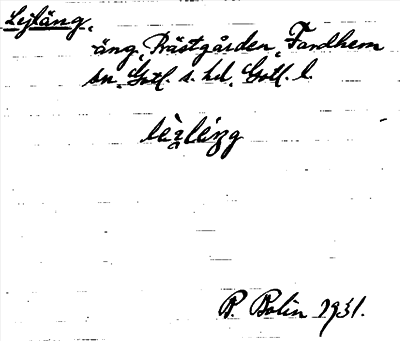 Lejläng,
äng, Prästgården, Fardhem
sn, Gotl. s. hd, Gotl. l.
P. Bolin 1931.